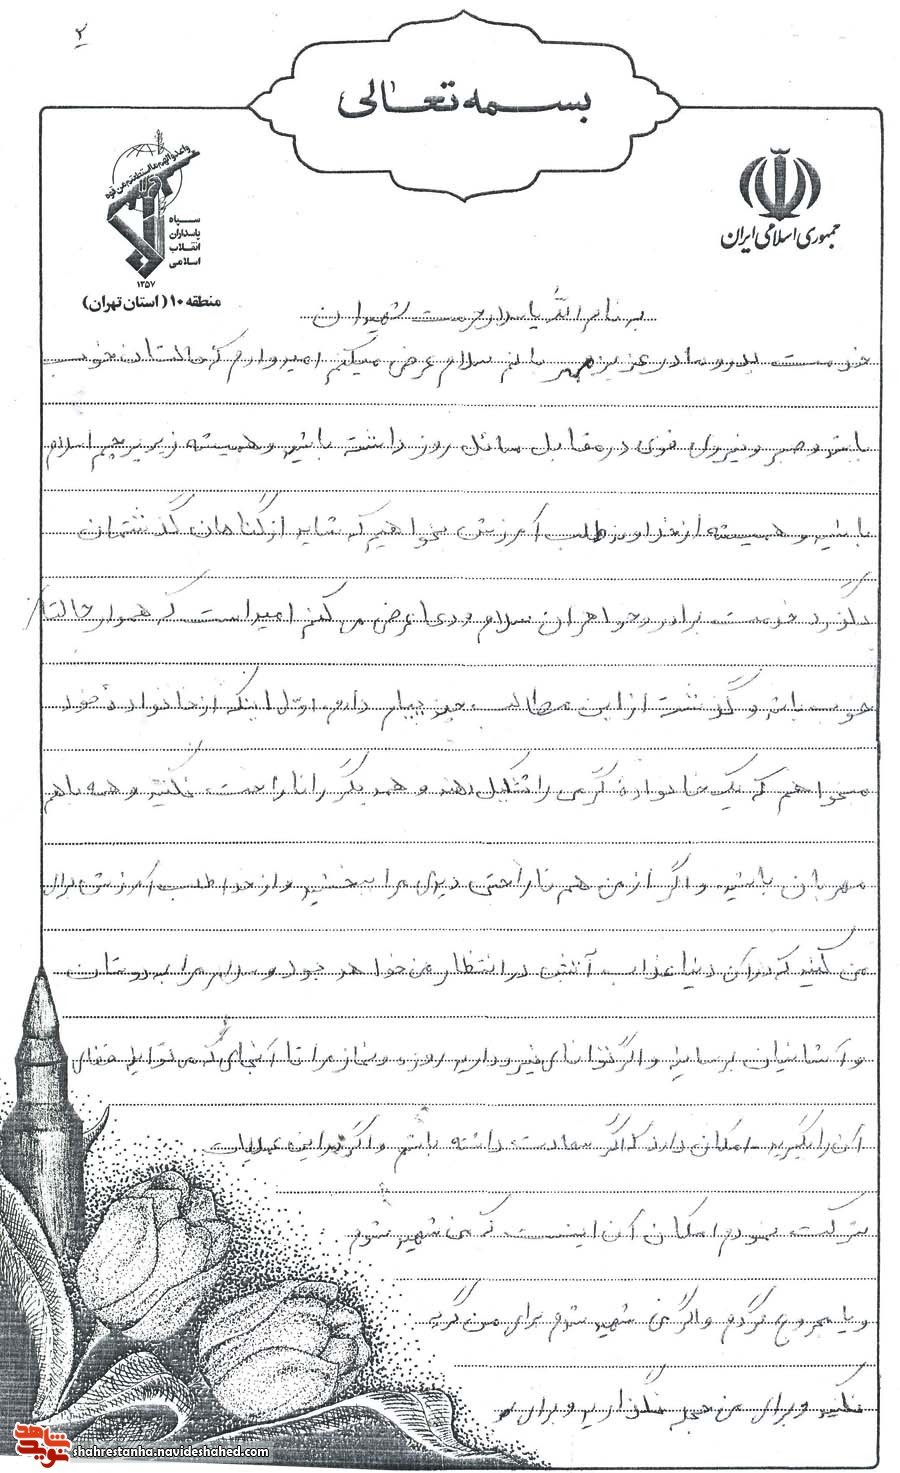 ۲
بسمه تعالی
جمهوری اسلامی ایران
واعدوا لهم ما استطعتم من قوة
سپاه
پاسداران
انقلاب
اسلامی
۱۳۵۷
منطقه ۱۰ (استان تهران)
به نام الله پاسدار حرمت شهیدان
خدمت پدر و مادر عزیز سلام عرض میکنم امیدوارم که حالتان خوب
باشد و صبر و نیروی قوی در مقابل مسائل روز داشته باشید و همیشه زیر پرچم اسلام
باشید و همیشه از خداوند طلب آمرزش بخواهیم که شاید از گناهان گذشتمان
درگذرد خدمت برادر و خواهران سلام و دعا عرض می کنم امید است که هموار حالتان
خوب باشد و گذشت از این مطالب چند پیام دارم. اول اینکه از خانوادهٔ خود
میخواهم که یک خانوادهٔ گرمی را تشکیل دهند و همدیگر را ناراحت نکنند و همه باهم
مهربان باشید. و اگر از من هم ناراحتی دیدی مرا ببخشید و از خدا طلب آمرزش برای
من کنید که در آن دنیا عذاب آتش در انتظار من خواهد بود و سلام مرا به دوستان
و آشنایان برسانید و اگر توانای نیرو دارید روزه و نماز مرا تا آنجای که می توانید قضای
آن را بگیرید. امکان دارد که اگر سعادت داشته باشم و اگر در این عملیات
شرکت نمودم امکان آن اینست که من شهید شوم
و یا مجروح گردم و اگر من شهید شدم برای من گریه
نکنید و برای من حجله نگذارید و برای
شاهد
نوید
shahrestanha.navideshahed.com